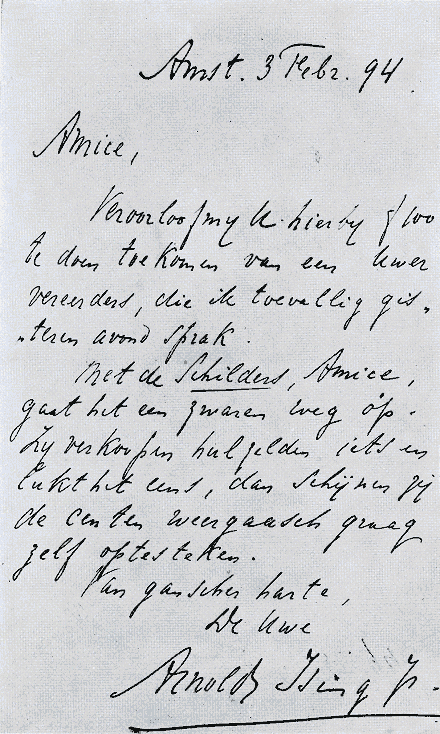 Amst. 3 Febr. 94.
Amice,
Veroorloof my U hierby ƒ 100
te doen toekomen van een Uwer
vereerders, die ik toevallig gis„
„teren avond sprak.
Met de Schilders, Amice,
gaat het een zwaren weg op.
Zy verkoopen heel zelden iets en
lukt het eens, dan schijnen zij
de centen weergaasch graag
zelf optesteken.
Van ganscher harte,
de Uwe
Arnold Ising Jr.